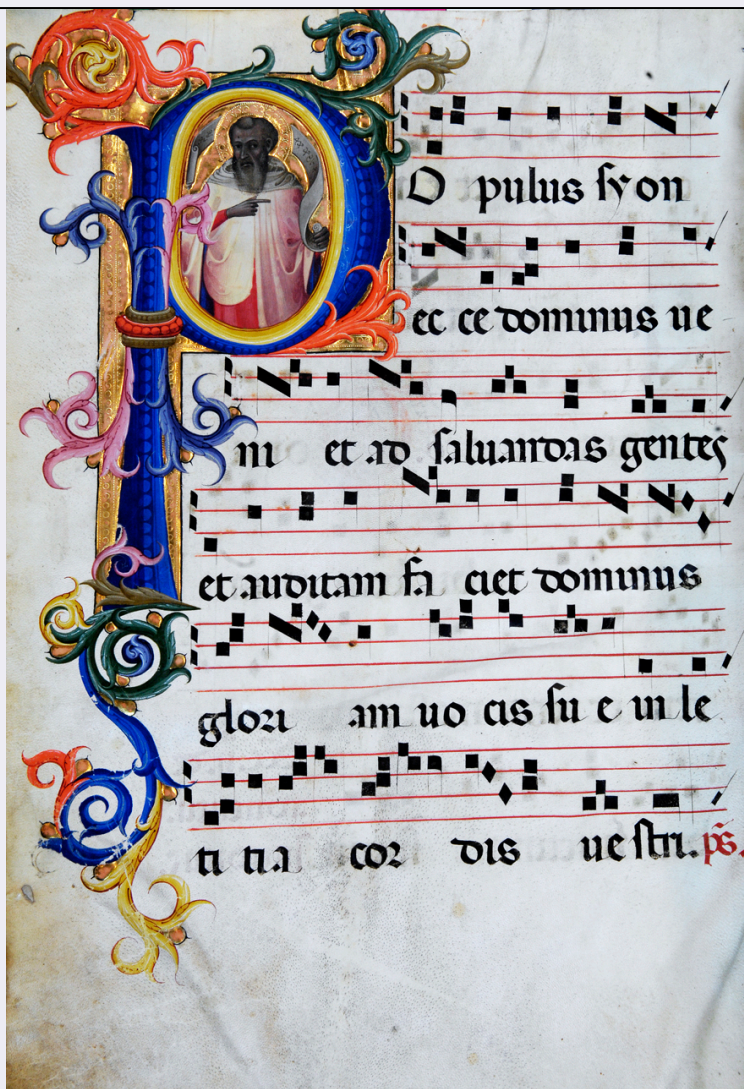 PO pulus syon
ec ce dominus ue
ni et ad saluandas gentes
et auditam fa ciet dominus
glori am uo cis su e in le
ti tia cor dis ue stri. ps.